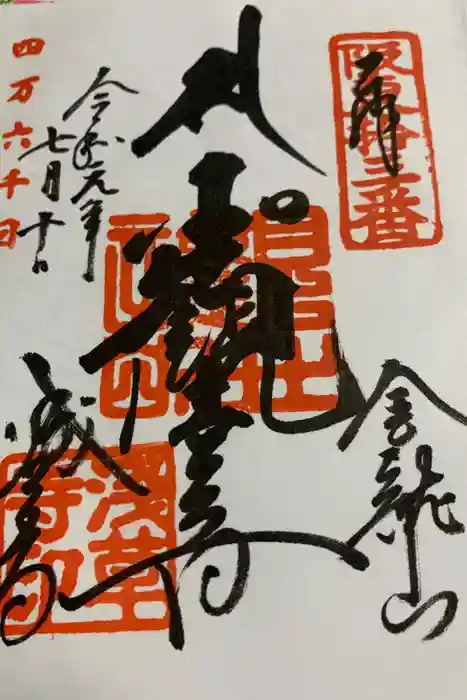 奉拝
阪東拾三番
金龍山
聖観世音
浅草寺
淺草寺印
令和元年
七月十日
四万六千日